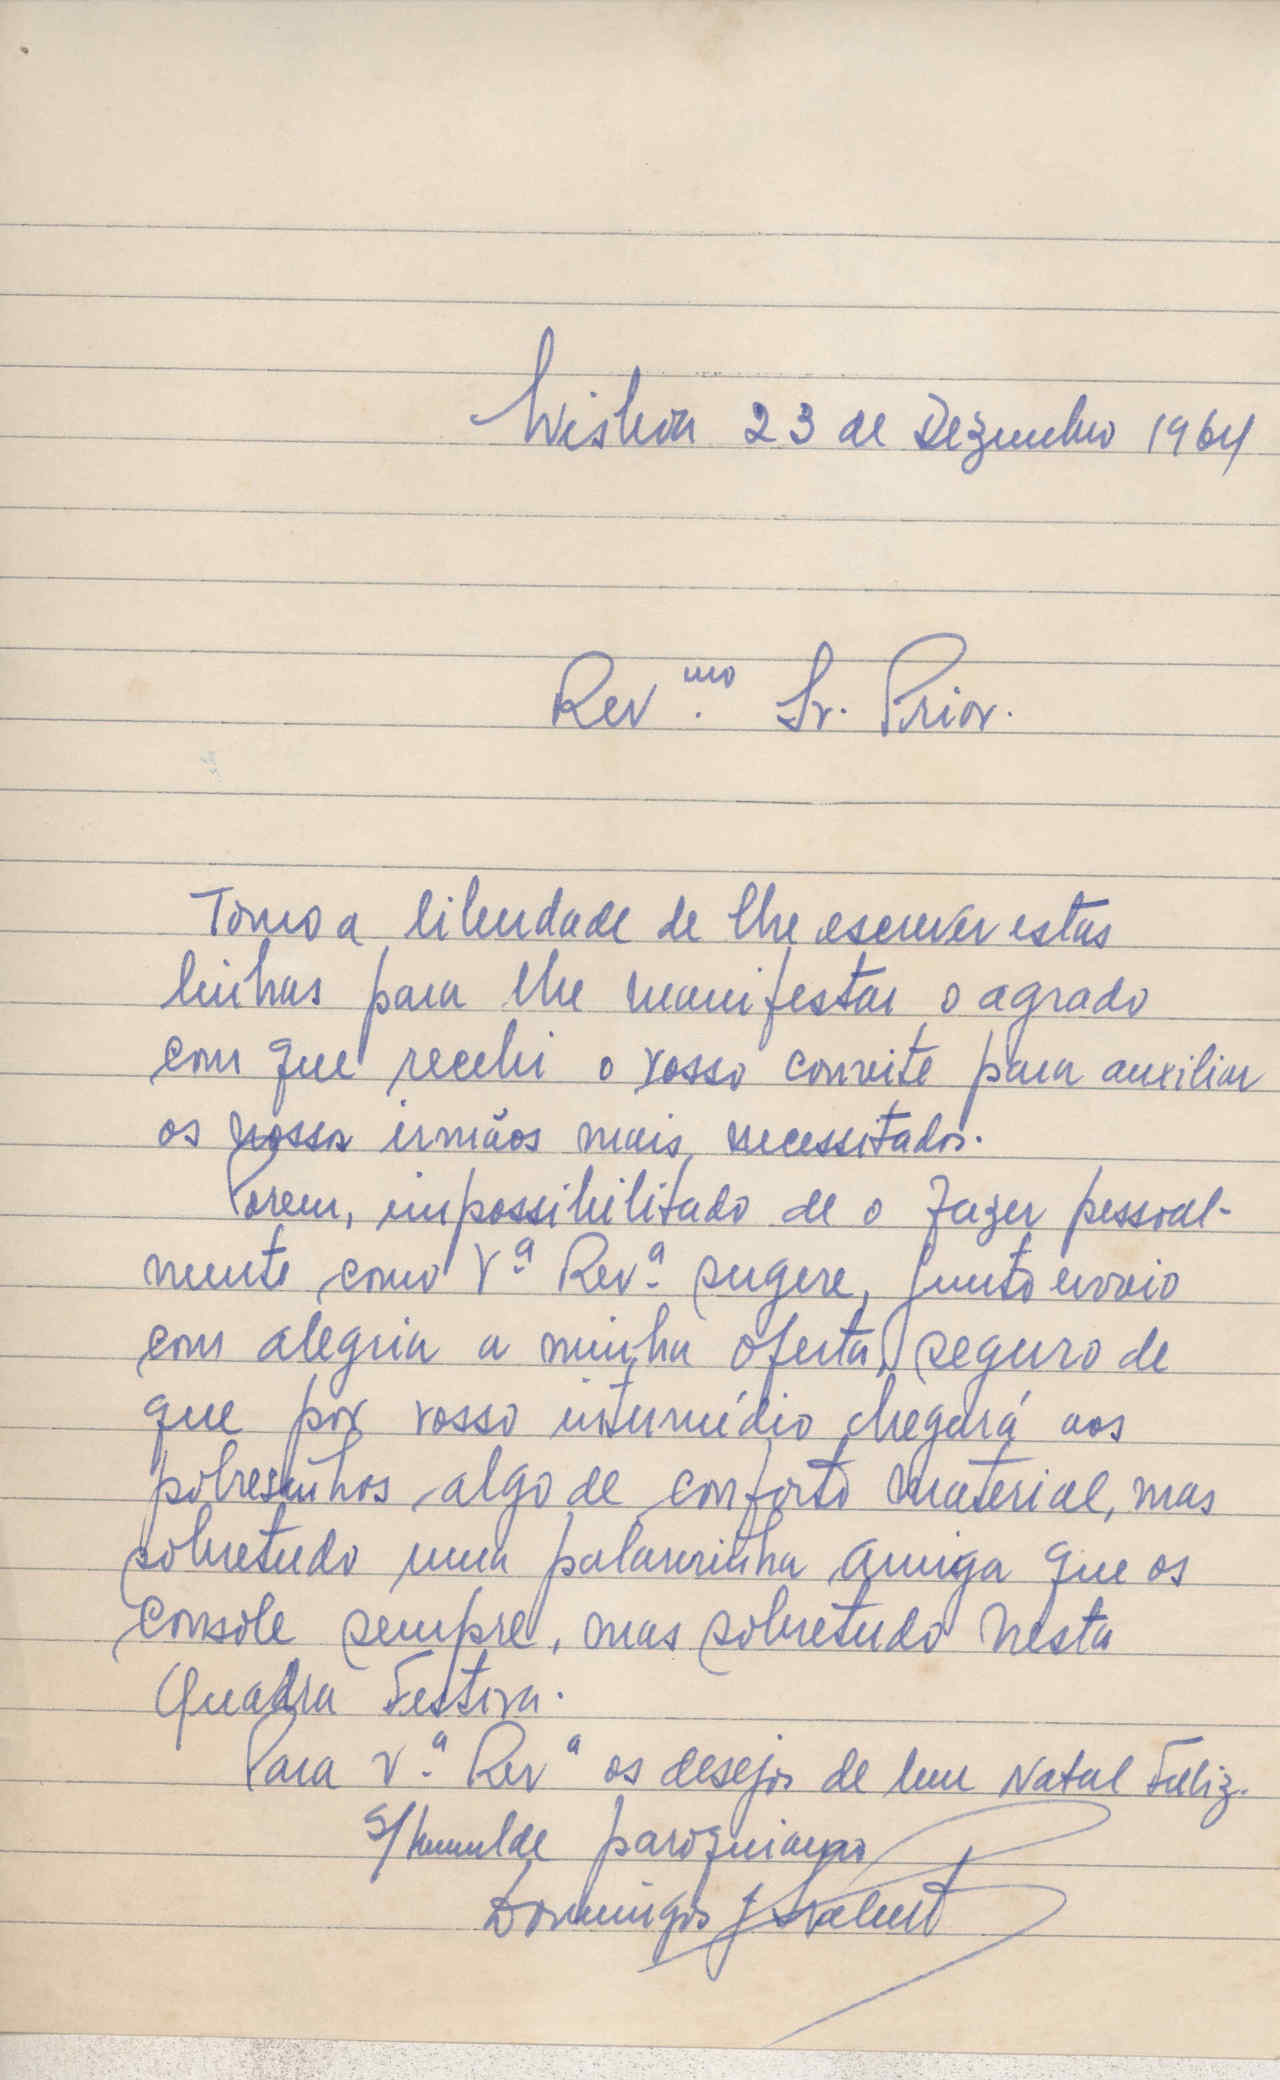 Lisboa 23 de Dezembro 1964
Rev.mo Sr. Prior.
Tomo a liberdade de lhe escrever estas
linhas para lhe manifestar o agrado
com que recebi o vosso convite para auxiliar
os nossos irmãos mais necessitados.
Porem, impossibilitado de o fazer pessoal-
mente como V.ª Rev.ª sugere, junto envio
com alegria a minha oferta, seguro de
que por vosso intermédio chegará aos
pobresinhos algo de conforto material, mas
sobretudo uma palavrinha amiga que os
console sempre, mas sobretudo nesta
Quadra Festiva.
Para V.ª Revª os desejos de bom Natal Feliz.
S/ humilde paroquiano
Domingos J